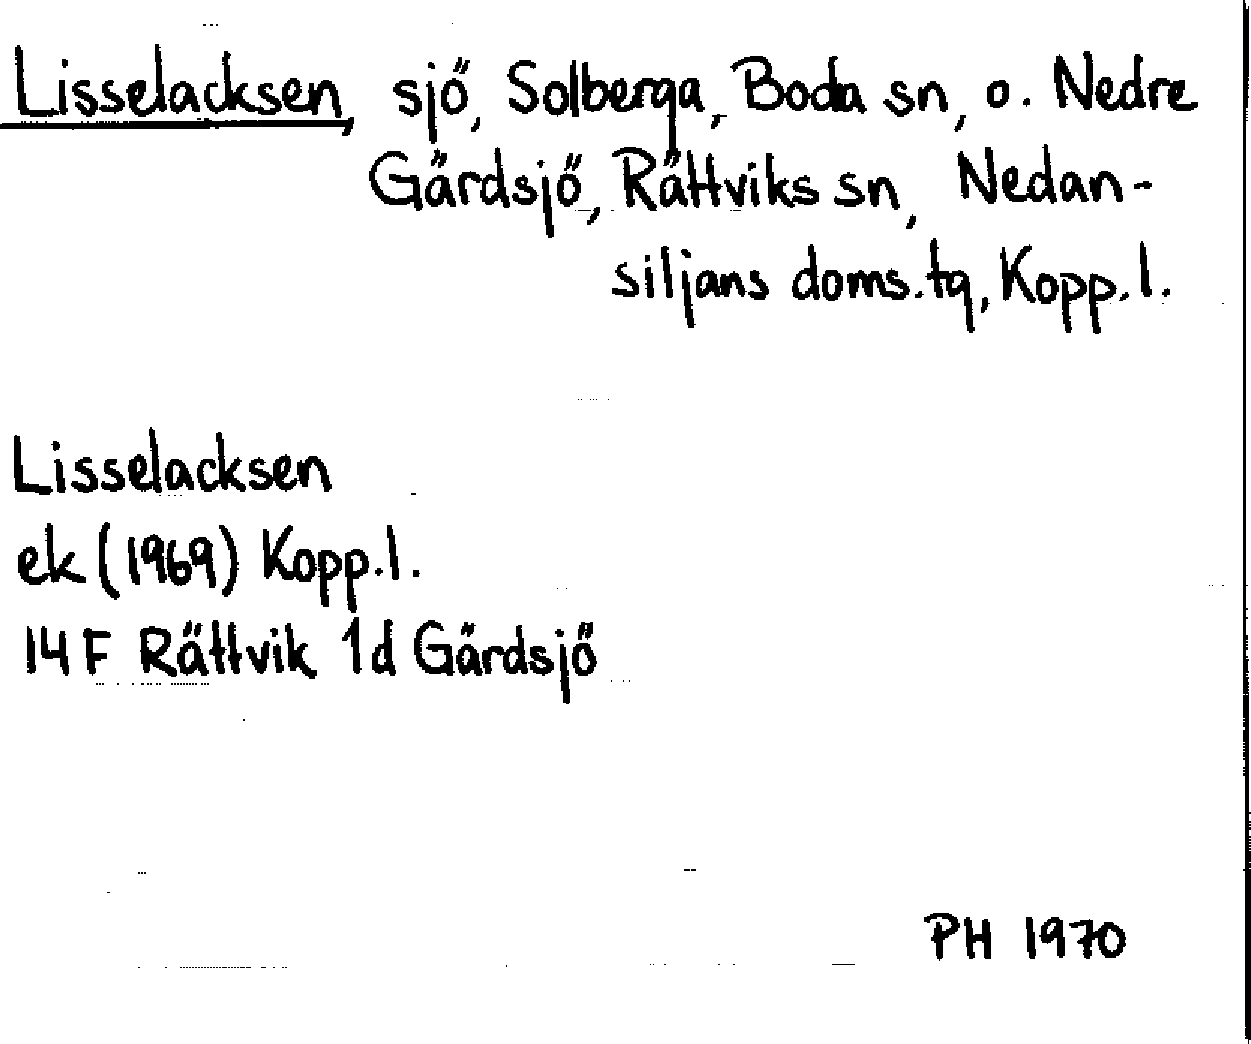 Lisselacksen, sjö, Solberga, Boda sn, o. Nedre
Gärdsjö, Rättviks sn, Nedan-
siljans doms.tg, Kopp.l.
Lisselacksen
ek (1969) Kopp.l.
14 F Rättvik 1d Gärdsjö
PH 1970